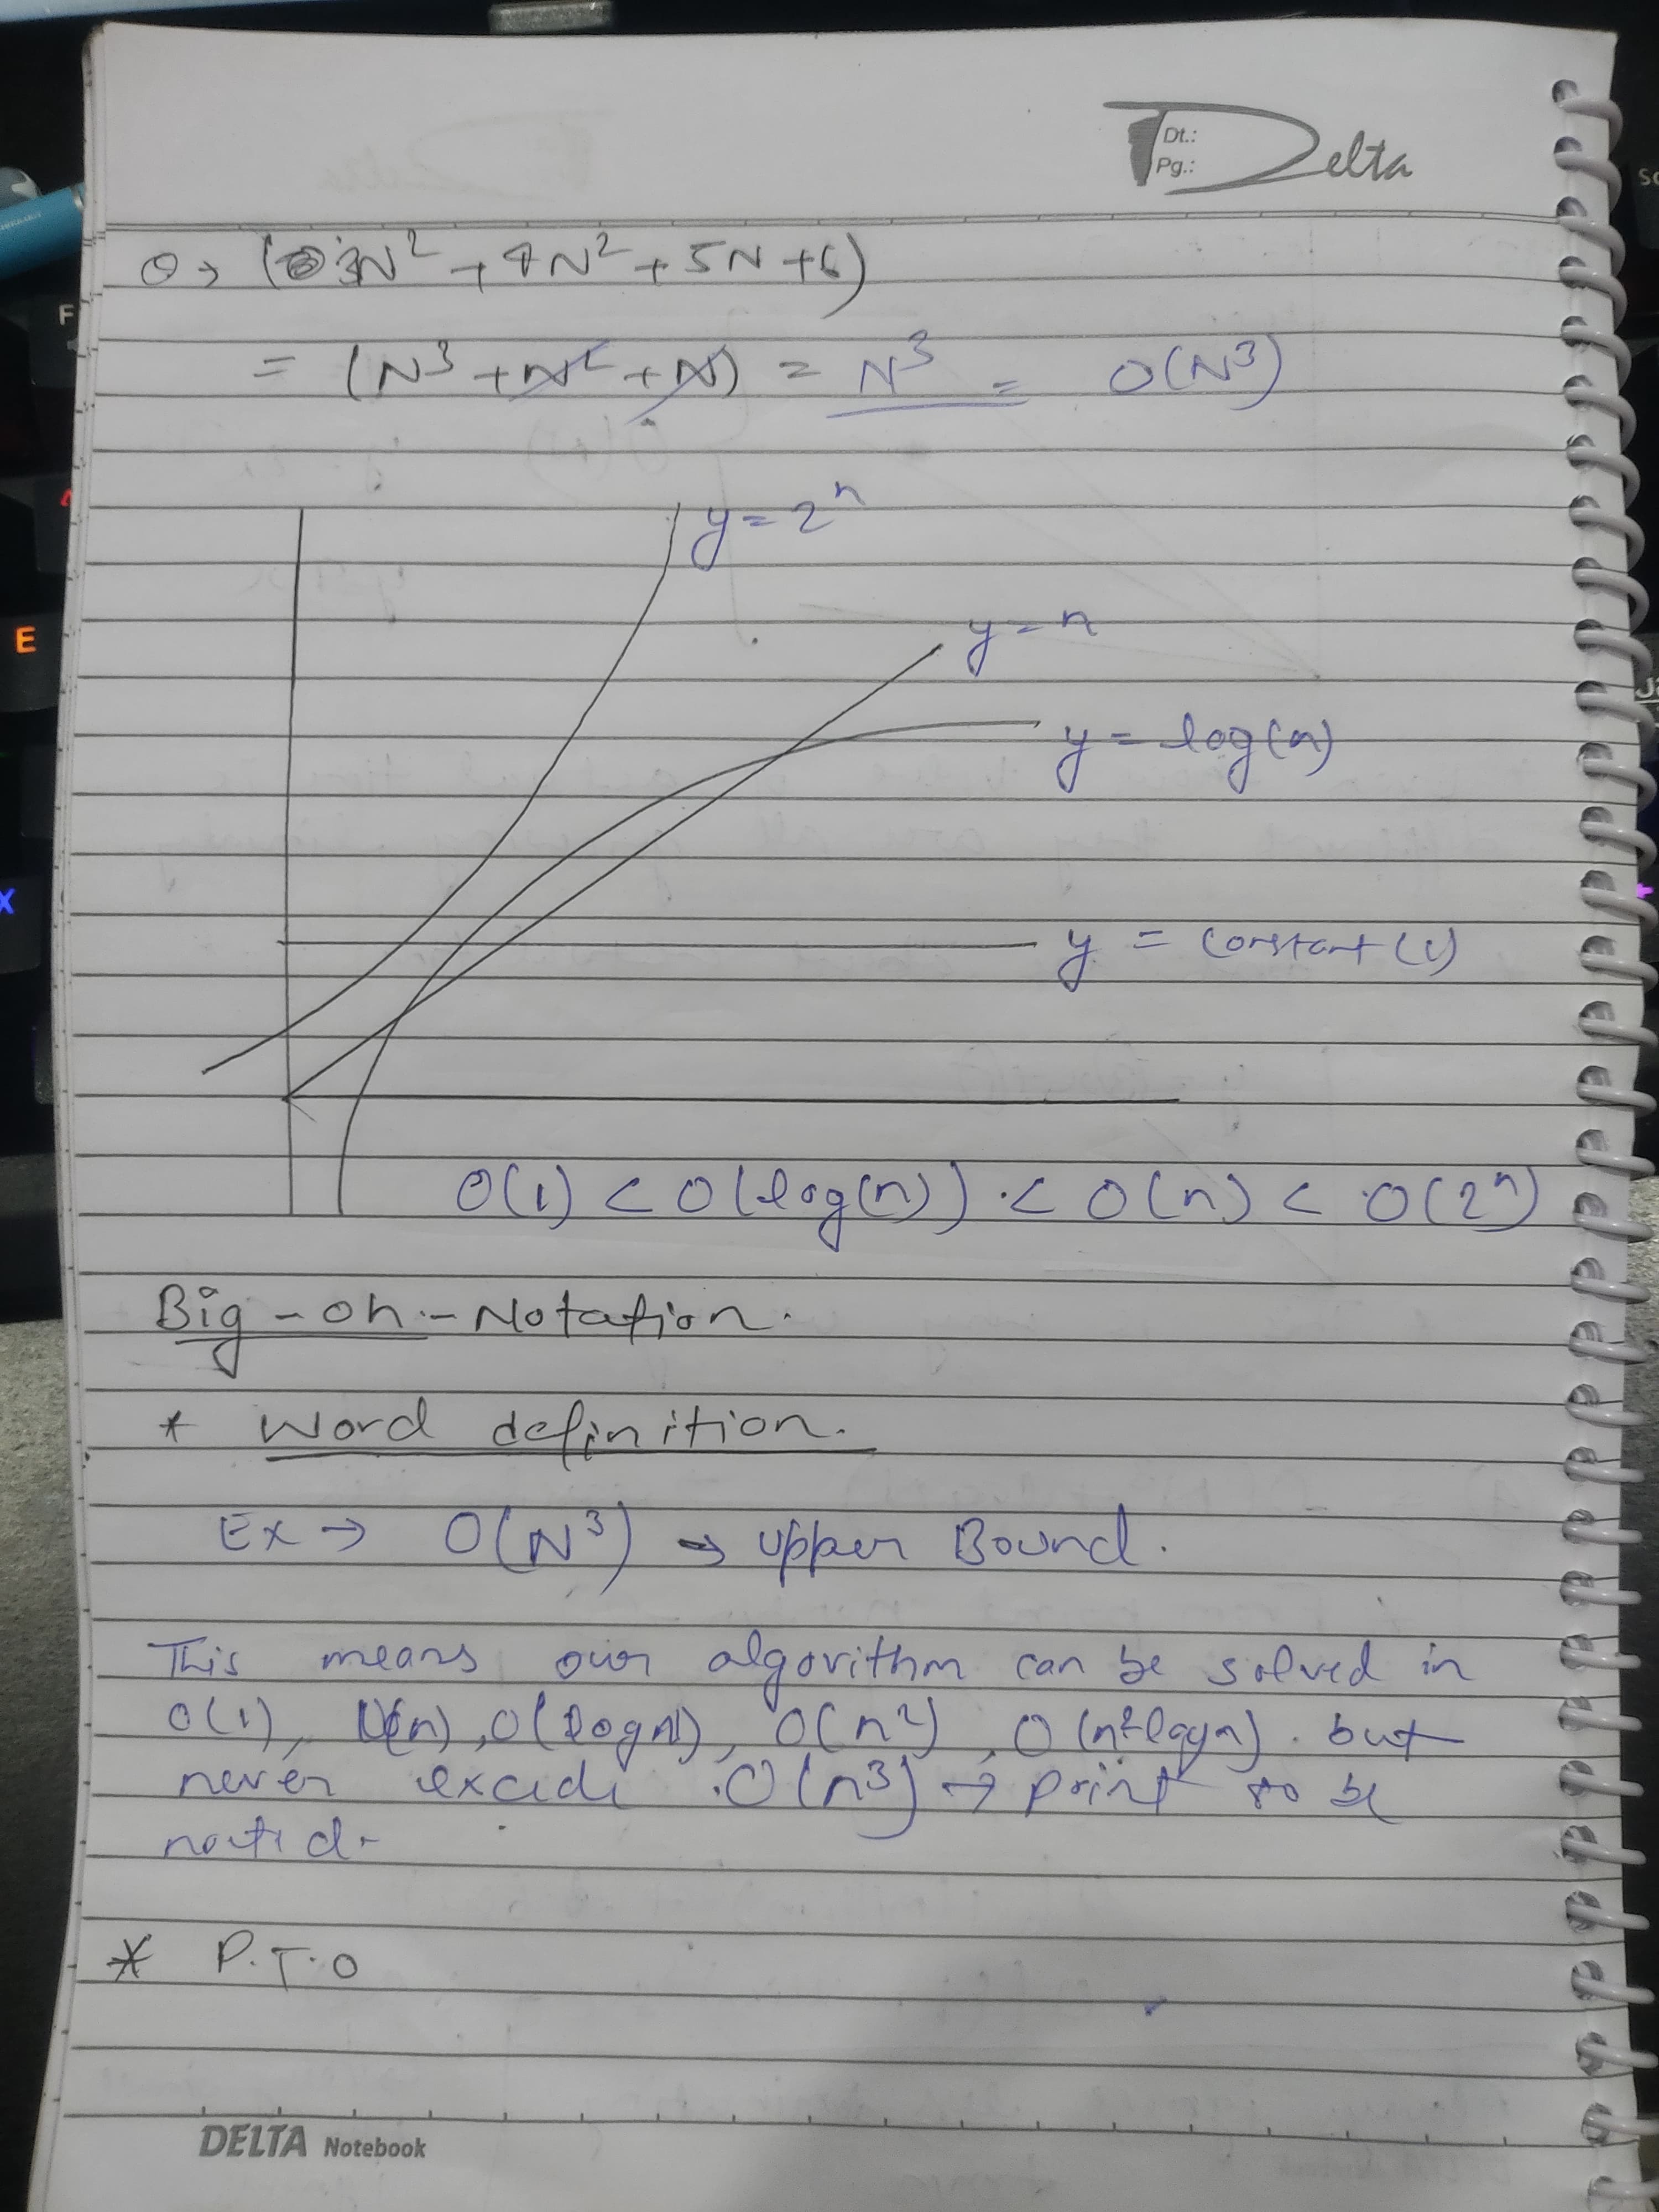 Dt.:
Pg.:
Delta
Q → (3N² + 4N² + 5N + 6)
= (N³ + N² + N) = N³ = O(N³)
y = 2ⁿ
y = n
y = log(n)
y = constant (1)
O(1) < O(log(n)) < O(n) < O(2ⁿ)
Big-oh-Notation.
* Word definition.
Ex → O(N³) → upper Bound.
This means our algorithm can be solved in
O(1), O(n), O(logn), O(n²), O(n²logn). but
never excede O(n³) → point to be
noted.
* P.T.O
DELTA Notebook